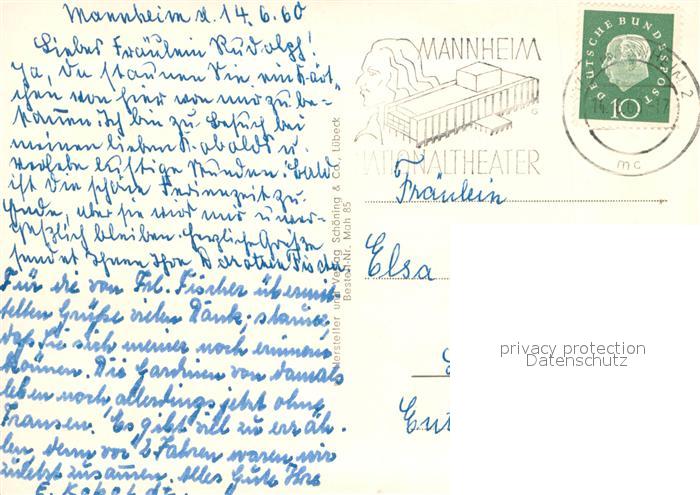 Mannheim d. 14.6.60
Liebes Fräulein Rudolph!
Ja, da staunen Sie ein Kärt-
chen von hier von mir zu be-
kommen. Ich bin zu Besuch bei
meinen lieben Kobaldts u.
verlebe lustige Stunden. Bald
ist die schöne Ferienzeit zu
Ende, aber sie wird mir unver-
geßlich bleiben. Herzliche Grüße
sendet Ihnen Ihre Dorothea Fischer
Für die von Frl. Fischer übermit-
telten Grüße vielen Dank; staune,
daß Sie sich meiner noch erinnern
können. Die Gardinen von damals
leben noch allerdings jetzt ohne
Fransen. Es gibt viel zu erzäh-
len, denn vor 2 Jahren waren wir
zuletzt zusammen. Alles Gute Ihre
E.
Hersteller und Verlag Schöning & Co., Lübeck
Bestell-Nr. Mah 85
MANNHEIM
NATIONALTHEATER
mc
DEUTSCHE BUNDESPOST
10
Fräulein
Elsa
privacy protection
Datenschutz